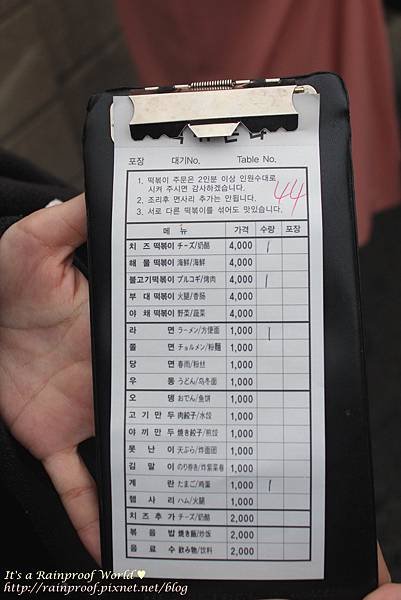 포장 대기No. Table No.
1. 떡볶이 주문은 2인분 이상 인원수대로
시켜 주시면 감사하겠습니다.
2. 조리후 면사리 추가는 안됩니다.
3. 서로 다른 떡볶이를 섞어도 맛있습니다.
44
메 뉴 가격 수량 포장
치즈떡볶이 チーズ/奶酪 4,000 1
해물떡볶이 海鮮/海鲜 4,000
불고기떡볶이 プルコギ/烤肉 4,000 1
부대떡볶이 火腿/香肠 4,000
야채떡볶이 野菜/蔬菜 4,000
라 면 ラーメン/方便面 1,000 1
쫄 면 チョルメン/粉麵 1,000
당 면 春雨/粉丝 1,000
우 동 うどん/乌冬面 1,000
오 뎅 おでん/鱼饼 1,000
고기만두 肉餃子/水饺 1,000
야끼만두 焼き餃子/煎饺 1,000
못난이 天ぷら/炸面团 1,000
김말이 のり巻き/炸紫菜卷 1,000
계 란 たまご/鸡蛋 1,000 1
햄사리 ハム/火腿 1,000
치즈추가 チーズ/奶酪 2,000
볶음밥 焼き飯/炒饭 2,000
음료수 飲み物/饮料 2,000
It's a Rainproof World♥
http://rainproof.pixnet.net/blog